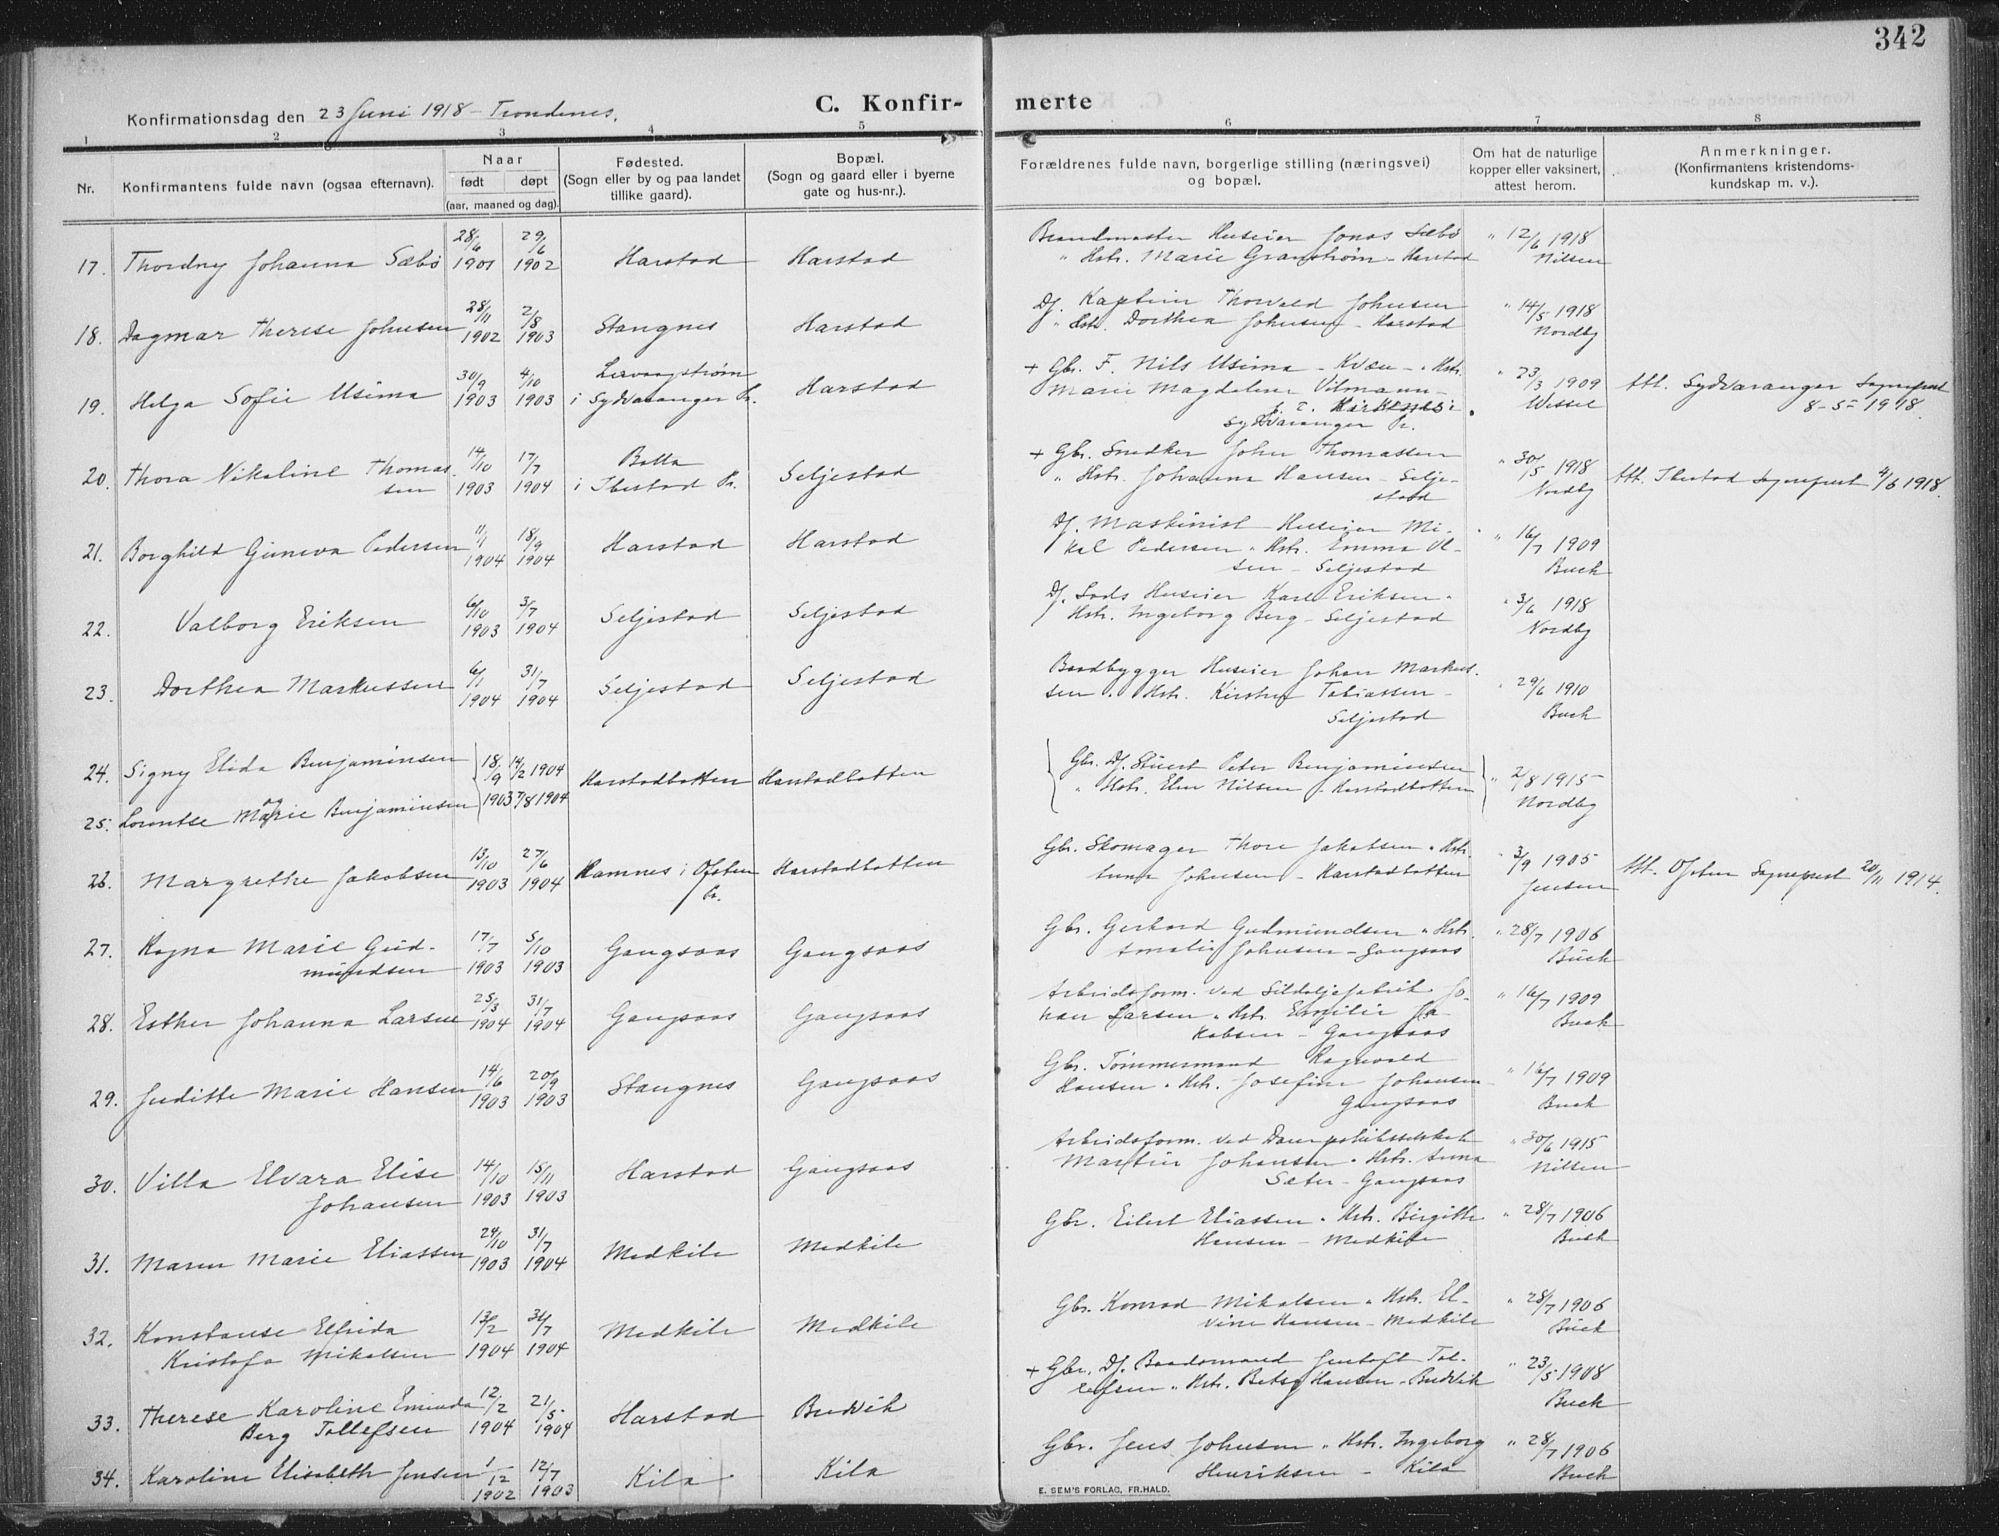 342
C. Konfir-
merte
Konfirmationsdag den 23 Juni 1918 - Trondenes.
1 2 3 4 5 6 7 8
Nr.
Konfirmantens fulde navn (ogsaa efternavn).
Naar
født døpt
(aar, maaned og dag).
Fødested.
(Sogn eller by og paa landet
tillike gaard).
Bopæl.
(Sogn og gaard eller i byerne
gate og hus-nr.).
Forældrenes fulde navn, borgerlige stilling (næringsvei)
og bopæl.
Om hat de naturlige
kopper eller vaksinert,
attest herom.
Anmerkninger.
(Konfirmantens kristendoms-
kundskap m. v.).
28/6 29/6
17. Thordny Johanna Sæbø 1901 1902 Harstad Harstad
Brandmester Huseier Jonas Sæbø " 12/6 1918
" Hstr. Marie Granstrøm - Harstad Nilsen
28/11 2/8
18. Dagmar Therese Johnsen 1902 1903 Stangnes Harstad
Dj. Kaptein Thorvald Johnsen " 14/5 1918
" Hstr. Dorthea Johnsen - Harstad Nordby
30/9 4/10
19. Helga Sofie Usima 1903 1903 i Sydvaranger Pr. Harstad
+ Gbr. F. Nils Usima - Kvæn - " Hstr. " 23/3 1909
Marie Magdelene Vilmann - Wessel
p. t. Kirkenes i
Sydvaranger Pr.
Att. Sydvaranger Sogneprest
8-5-1918.
14/10 17/7
20. Thora Nikoline Thomas- Balla
sen 1903 1904 i Ibestad Pr. Seljestad
+ Gbr. Snedker John Thomassen " 30/5 1918
" Hstr. Johanna Hansen - Selje- Nordby
stad
Att. Ibestad Sogneprest 4/6 1918.
11/1 18/9
21. Borghild Guneva Pedersen 1904 1904 Harstad Harstad
Dj. Maskinist Huseier Mi- " 16/7 1909
kal Pedersen " Hstr. Emma Ol- Buch
sen - Seljestad
6/10 3/7
22. Valborg Eriksen 1903 1904 Seljestad Seljestad
Dj. Lods Huseier Karl Eriksen " " 3/6 1918
Hstr. Ingeborg Berg - Seljestad Nordby
6/1 31/7
23. Dorthea Markussen 1904 1904 Seljestad Seljestad
Baadbygger Huseier Johan Markus- " 29/6 1910
sen " Hstr. Kirsten Tobiassen - Buch
Seljestad
24. Signy Elida Benjaminsen 18/9 14/2 1904 Harstadbotten Harstadbotten
og
25. Lorentse Marie Benjaminsen 1903 7/8 1904
Gbr. Dj. Stuert Peter Benjaminsen " 2/8 1915
" Hstr. Elen Nilsen - Harstadbotten Nordby
13/10 27/6
26. Margrethe Jakobsen 1903 1904 Ramnes i Ofoten Pr. Harstadbotten
Gbr. Skomager Thore Jakobsen " Hstr. " 3/9 1905
Anna Johnsen - Harstadbotten Jensen
Att. Ofoten Sogneprest 20/11 1914.
17/7 5/10
27. Ragna Marie Gud-
mundsen 1903 1903 Gangsaas Gangsaas
Gbr. Gerhard Gudmundsen " Hstr. " 28/7 1906
Amalie Johnsen - Gangsaas Buch
25/3 31/7
28. Esther Johanna Larsen 1904 1904 Gangsaas Gangsaas
Arbeidsform. ved Sildoljefabrik Jo- " 16/7 1909
han Larsen " Hstr. Emilie Ja- Buch
kobsen - Gangsaas
14/6 20/9
29. Juditte Marie Hansen 1903 1903 Stangnes Gangsaas
Gbr. Tømmermand Ragnvald " 16/7 1909
Hansen " Hstr. Josefine Johansen - Buch
Gangsaas
14/10 15/11
30. Villa Elvara Elise
Johansen 1903 1903 Harstad Gangsaas
Arbeidsform. ved Dampskibsselskab " 30/6 1915
Martin Johansen " Hstr. Anna Nilsen
Sæter - Gangsaas
24/10 31/7
31. Maren Marie Eliassen 1903 1904 Medkile Medkile
Gbr. Eilert Eliassen " Hstr. Birgitte " 28/7 1906
Hansen - Medkile Buch
13/2 31/7
32. Konstanse Elfrida
Kristofa Mikalsen 1904 1904 Medkile Medkile
Gbr. Konrad Mikalsen " Hstr. El- " 28/7 1906
vine Hansen - Medkile Buch
12/2 21/5
33. Therese Karoline Eminda
Berg Tollefsen 1904 1904 Harstad Budvik
+ Gbr. Dj. Baadsmand Jentoft Tol- " 23/5 1908
lefsen " Hstr. Betsy Hansen - Budvik Buch
34. Karoline Elisabeth Jensen 1/12 1902 12/7 1903 Kila Kila
Gbr. Jens Johnsen " Hstr. Ingeborg " 28/7 1906
Henriksen - Kila Buch
E. SEM'S FORLAG, FR.HALD.